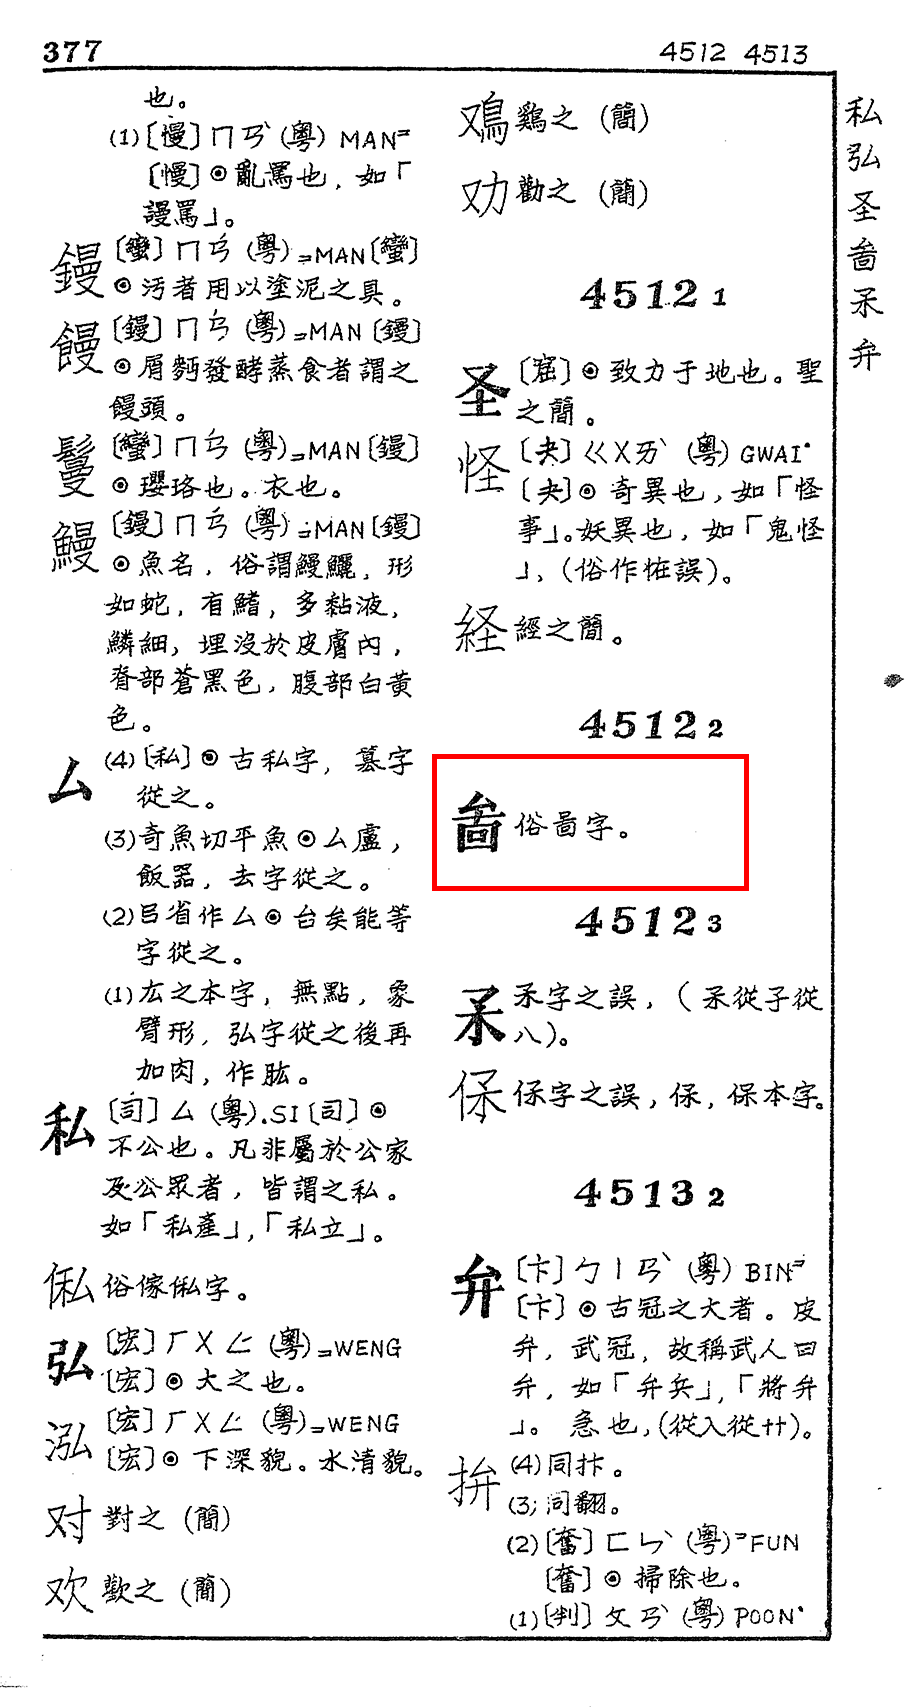 377
4512 4513
也。
(1)〔慢〕ㄇㄢˋ(粵) MAN=
〔慢〕⊙亂罵也，如「
謾罵」。
鏝〔蠻〕ㄇㄢˊ(粵)=MAN〔蠻〕
⊙污者用以塗泥之具。
饅〔鏝〕ㄇㄢˊ(粵)=MAN〔鏝〕
⊙屑麪發酵蒸食者謂之
饅頭。
鬘〔蠻〕ㄇㄢˊ(粵)=MAN〔鏝〕
⊙瓔珞也。衣也。
鰻〔鏝〕ㄇㄢˊ(粵)=MAN〔鏝〕
⊙魚名，俗謂鰻鱺，形
如蛇，有鰭，多黏液，
鱗細，埋沒於皮膚內，
脊部蒼黑色，腹部白黃
色。
厶 (4)〔私〕⊙古私字，篡字
從之。
(3)奇魚切平魚⊙厶盧，
飯器，去字從之。
(2)㠯省作厶⊙台矣能等
字從之。
(1)厷之本字，無點，象
臂形，弘字從之後再
加肉，作肱。
私〔司〕ㄙ(粵).SI〔司〕⊙
不公也。凡非屬於公家
及公眾者，皆謂之私。
如「私產」，「私立」。
俬 俗傢俬字。
弘〔宏〕ㄏㄨㄥ(粵)=WENG
〔宏〕⊙大之也。
泓〔宏〕ㄏㄨㄥ(粵)=WENG
〔宏〕⊙下深貌。水清貌。
对 對之 (簡)
欢 歡之 (簡)
鳮 鷄之 (簡)
劝 勸之 (簡)
4512 1
圣〔窟〕⊙致力于地也。聖
之簡。
怪〔夬〕ㄍㄨㄞˋ (粵) GWAI·
〔夬〕⊙奇異也，如「怪
事」。妖異也，如「鬼怪
」，(俗作恠誤)。
経 經之簡。
4512 2
俗啚字。
4512 3
釆字之誤，(
八)。
字之誤，保，保本字。
4513 2
弁〔卞〕ㄅㄧㄢˋ (粵) BIN=
〔卞〕⊙古冠之大者。皮
弁，武冠，故稱武人曰
弁，如「弁兵」，「將弁
」。急也，(從入從廾)。
拚 (4)同抃。
(3)同翻。
(2)〔奮〕ㄈㄣˋ (粵)=FUN
〔奮〕⊙掃除也。
(1)〔判〕ㄆㄢˋ (粵) POON·
私
弘
圣
弁